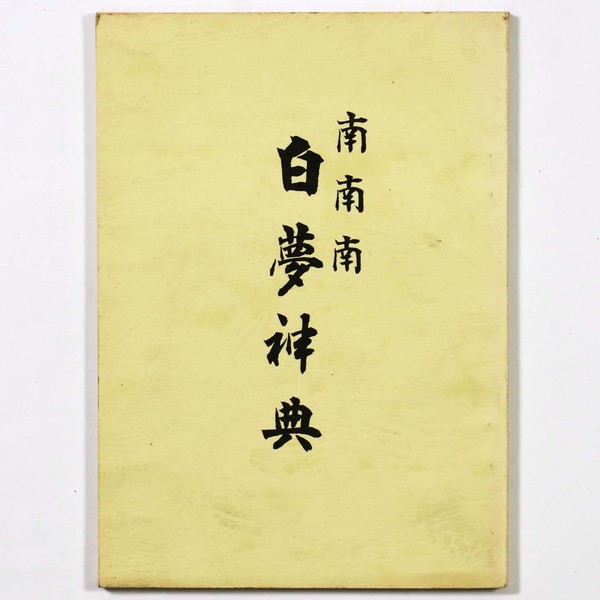 南南南
白夢神典